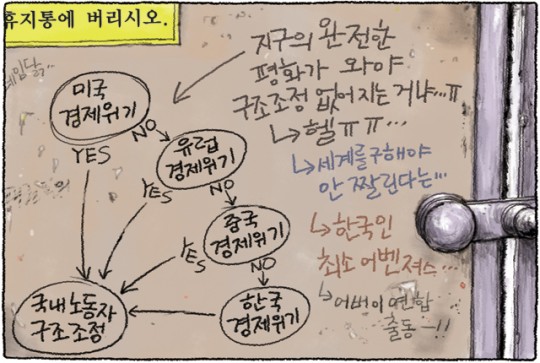 휴지통에 버리시오.
지구의 완전한
평화가 와야
구조조정 없어지는 거냐...ㅠ
↳헬ㅠㅠ...
↳세계를구해야
안 짤린다는...
↳한국인
최소 어벤져스...
↳어버이연합
출동ㅡ!!
미국
경제위기
NO
YES
유럽
경제위기
NO
YES
중국
경제위기
NO
YES
한국
경제위기
국내노동자
구조조정